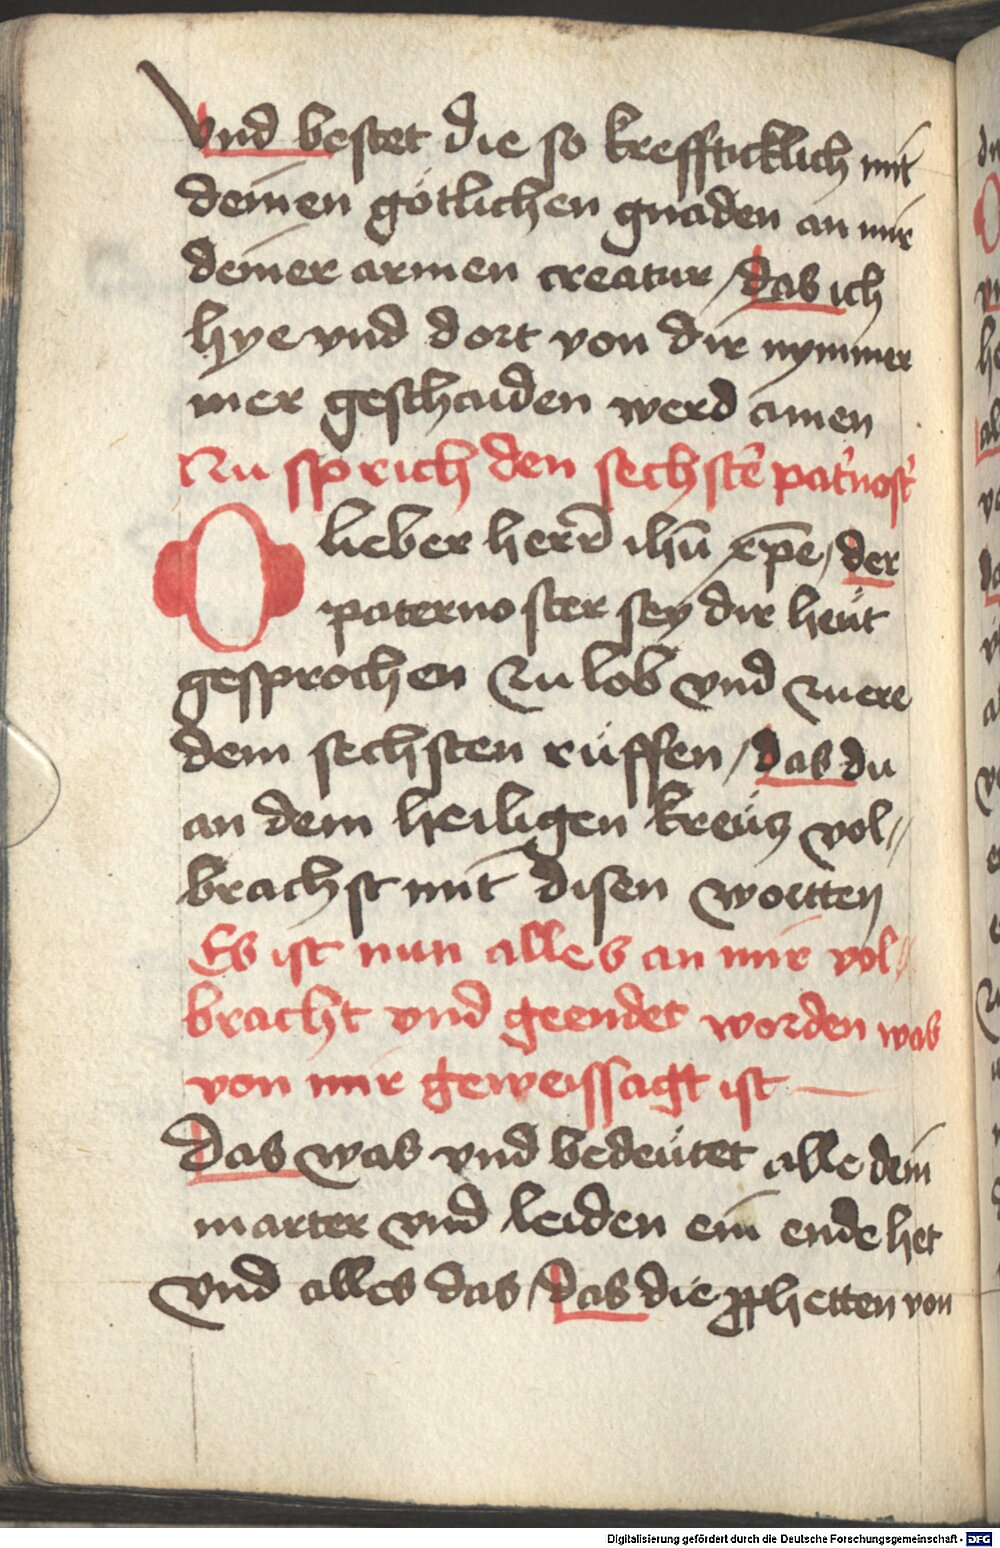 Vnd bestet die so kreffticklich mit
deinen götlichen gnaden an mir
deiner armen creatur / das ich
hye vnd dort von dir nymmer
mer geschaiden werd amen
Nu sprich den sechstē pat'nost'
O lieber herr̄ ihū xp̄e / der
paternoster sey dir heüt
gesprochen zu lob vnd zu ere
dem sechsten rüffen / das du
an dem heiligen kreüz vol〃
brachst mit disen wortten
Es ist nun alles an mir vol〃
bracht vnd geendet worden was
von mir geweissagt ist —
Das was vnd bedeütet alle dein
marter vnd leiden ein ende het
vnd alles das / das die ꝓphetten von
Digitalisierung gefördert durch die Deutsche Forschungsgemeinschaft - DFG